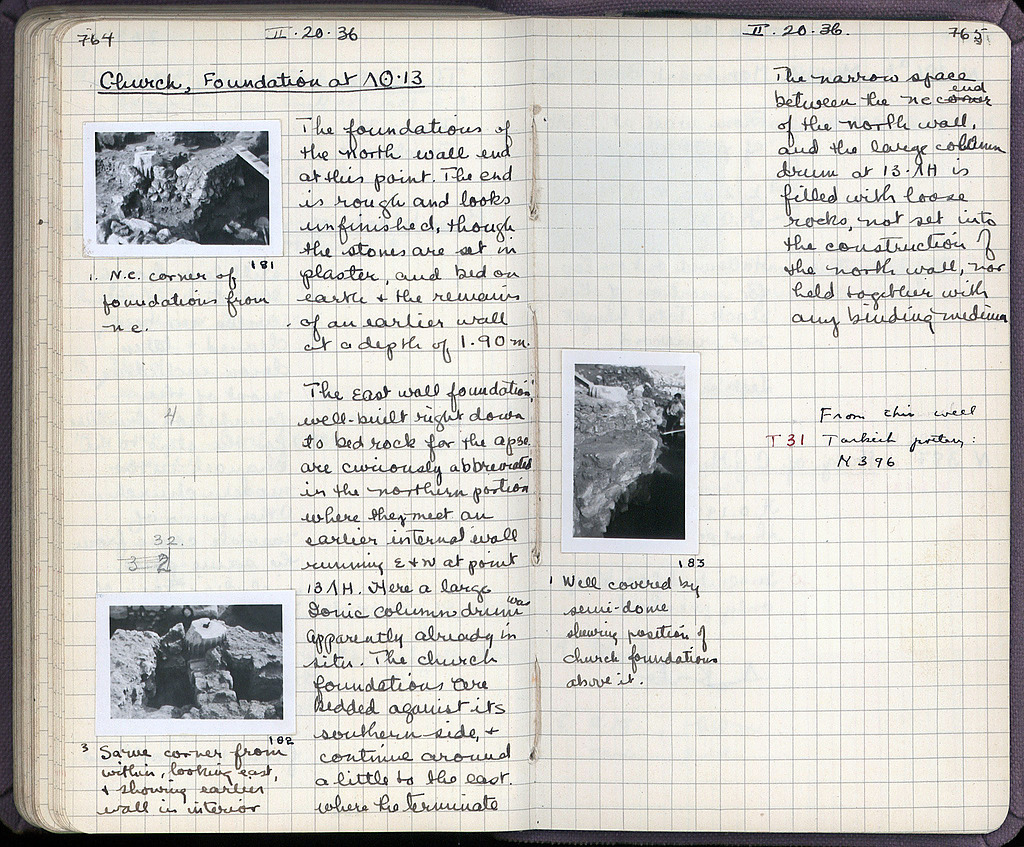 764
II · 20 · 36
Church, Foundation at ΛΘ·13
181
1. N.E. corner of
foundations from
n e.
The foundations of
the north wall end
at this point. The end
is rough and looks
unfinished, though
the stones are set in
plaster, and bed on
earth & the remains
of an earlier wall
at a depth of 1.90 m.
The East wall foundation,
well-built right down
to bed rock for the apse
are curiously abbreviated
in the northern portion
where they meet an
earlier internal wall
running E & W at point
13 ΛH. Here a large
Ionic column drum was
apparently already in
situ. The church
foundations are
bedded against its
southern side, &
continue around
a little to the east.
where he terminate
4
32.
3 2
182
3 Same corner from
within, looking east,
& showing earlier
wall in interior
II · 20 · 36.
765
The narrow space
between the ne corner end
of the north wall,
and the large column
drum at 13·ΛH is
filled with loose
rocks, not set into
the construction of
the north wall, nor
held together with
any binding medium
183
1 Well covered by
semi-dome
shewing position of
church foundations
above it.
From this well
T 31 Turkish pottery:
N 396